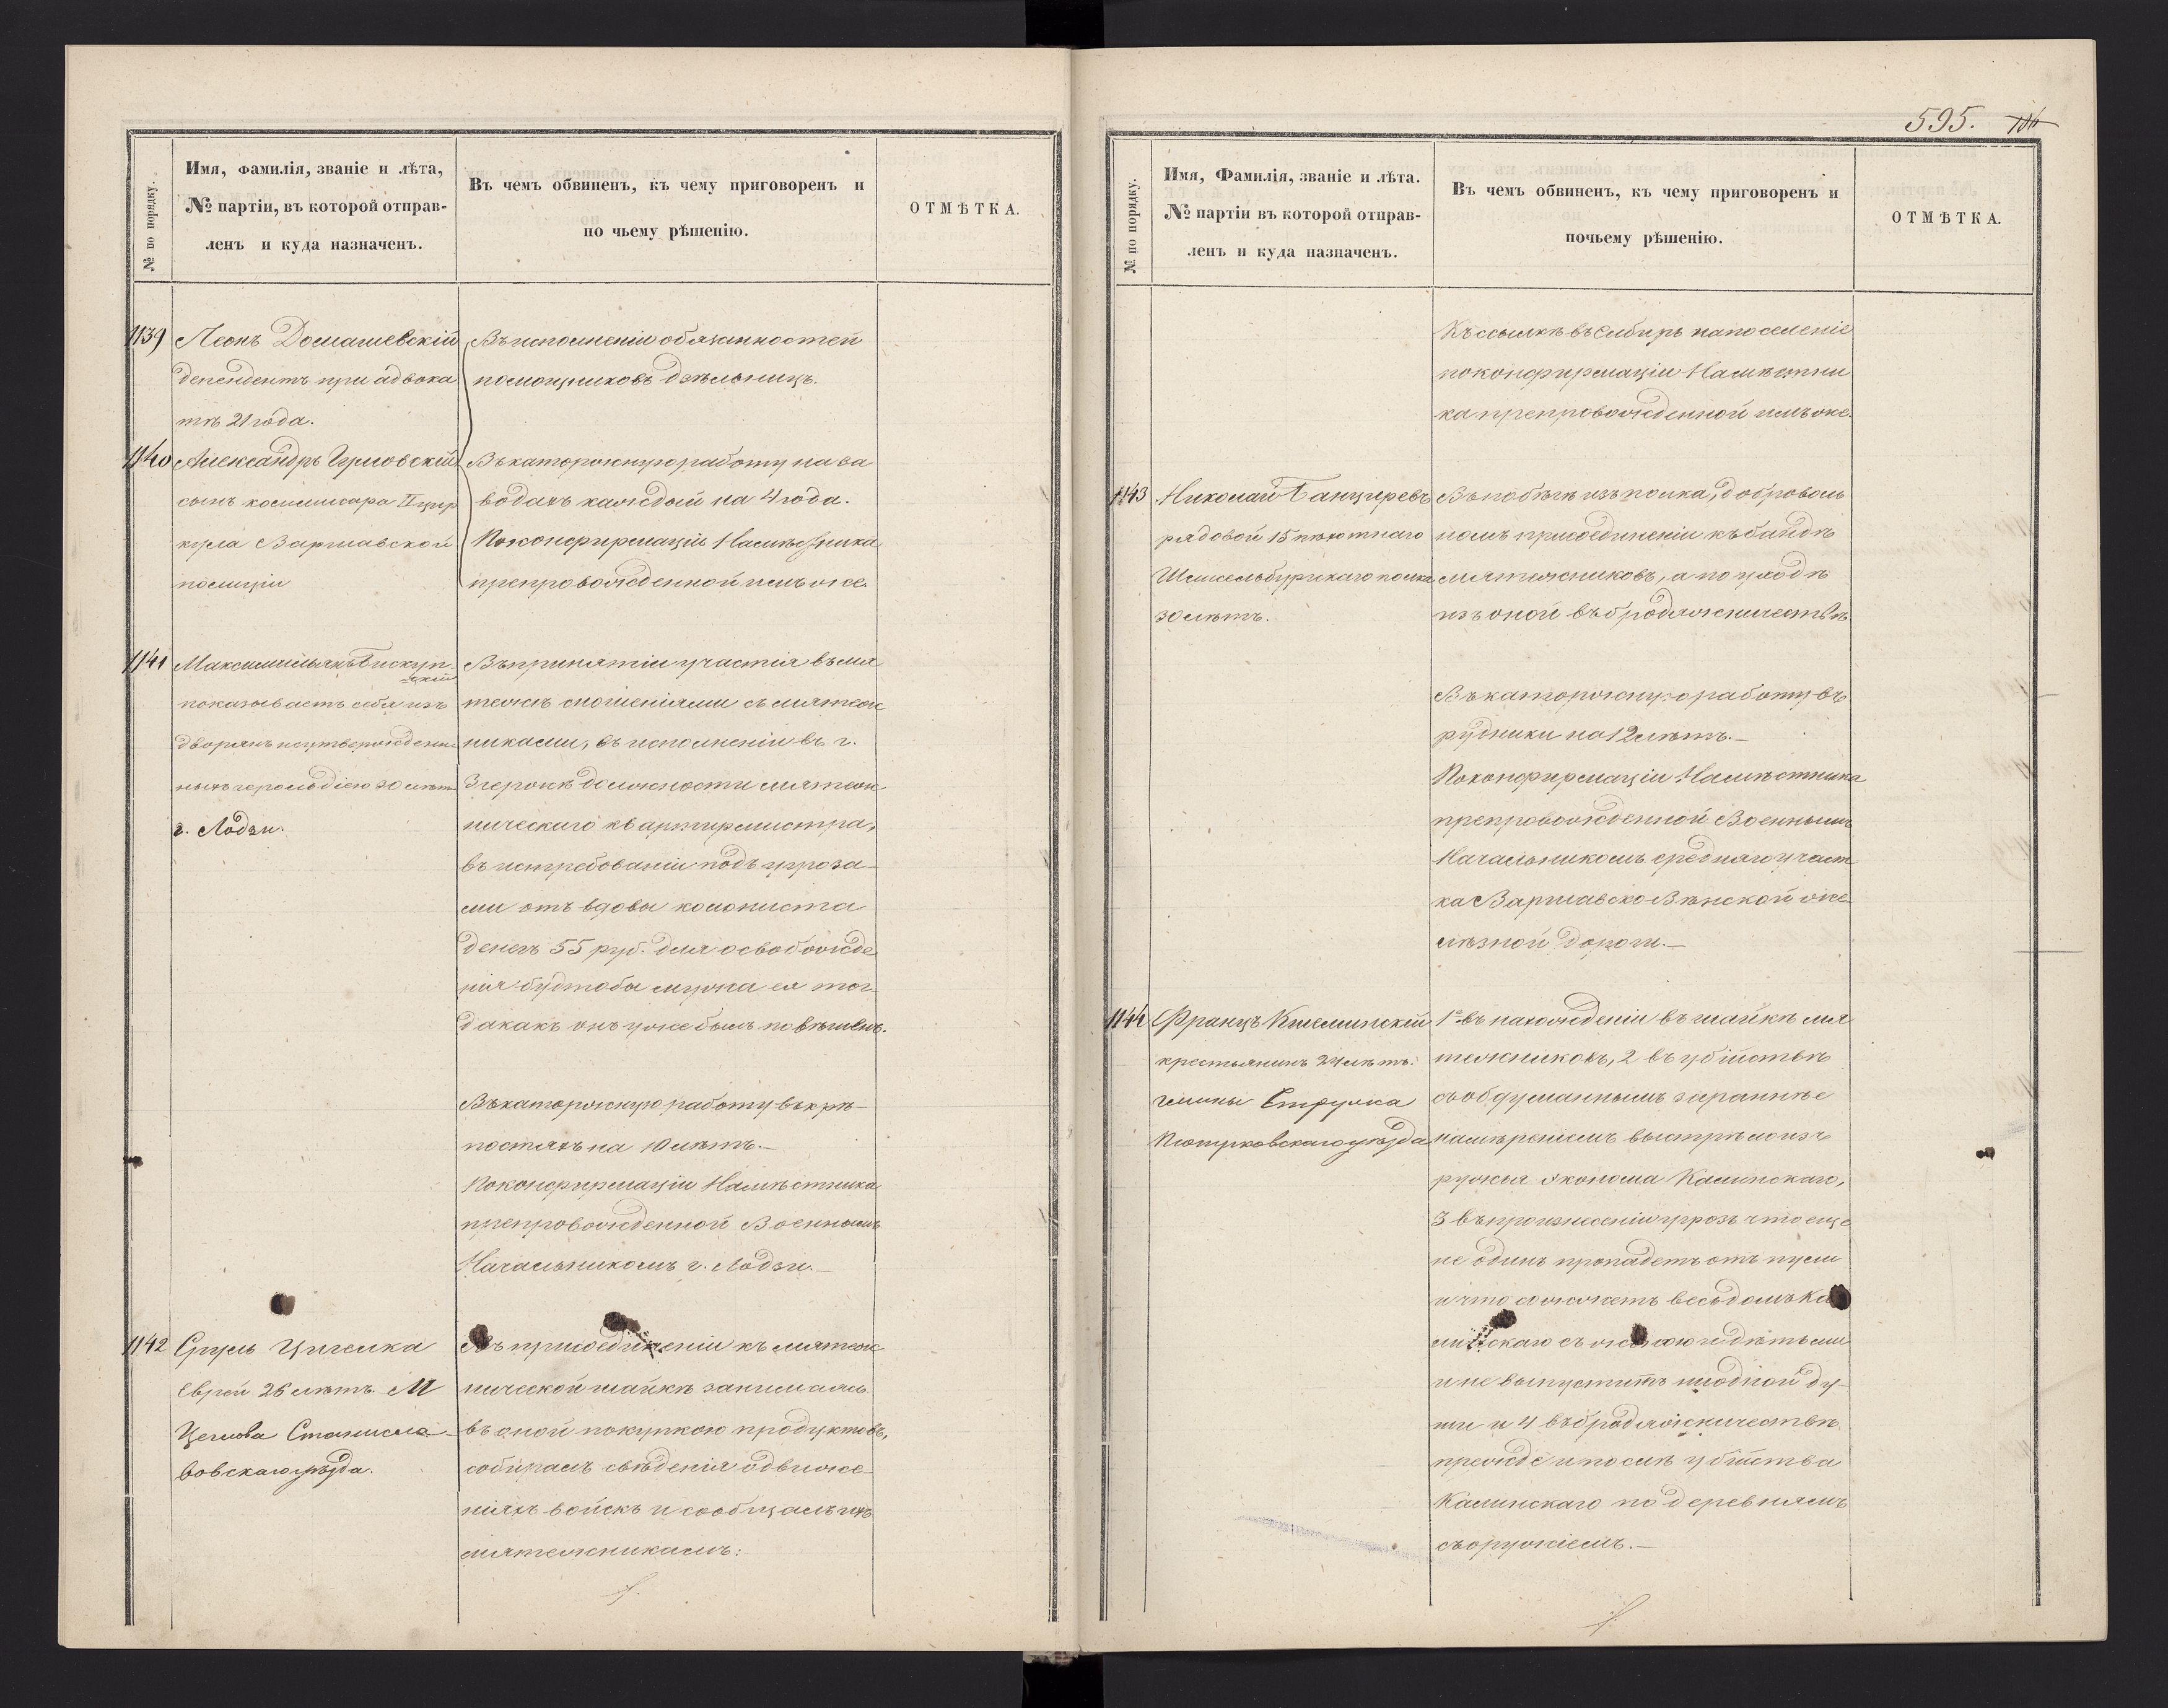 № по порядку.
Имя, Фамилія, званіе и лѣта,
№ партіи, въ которой отправ-
ленъ и куда назначенъ.
Въ чемъ обвиненъ, къ чему приговоренъ и
по чьему рѣшенію.
ОТМѢТКА.
1139 Леонъ Домашевскій
депендентъ при адвока
тѣ 21 года.
Въ исполненіи обязанностей
помощниковъ дзѣльницъ.
1140 Александръ
сынъ коммисара II цир
кула Варшавской
полиціи
Въ каторжную работу на за
водахъ каждый на 4 года.
По конфирмаціи Намѣстника
препровожденной имъ же.
1141 Максимильянъ Бискуп-
скій
показываетъ себя изъ
дворянъ неутвержден-
ныхъ герольдіею 30 лѣтъ
г. Лодзи.
Въ принятіи участія въ мя
тежѣ сношеніями съ мятеж
никами, въ исполненіи въ г.
Згержѣ должности мятеж-
ническаго квартирмистра,
въ истребованіи подъ угроза-
ми отъ вдовы колониста
денегъ 55 руб. для освобожде
нія будтобы мужа ея тог-
да какъ онъ уже былъ повѣшенъ.
Въ каторжную работу въ крѣ-
постяхъ на 10 лѣтъ.-
По конфирмаціи Намѣстника
препровожденной Военнымъ
Начальникомъ г. Лодзи.-
1142 Сруль Цигелка
Еврей 26 лѣтъ. М
Цеглова Станисла-
вовскаго уѣзда.
Въ присоединеніи къ мятеж
нической шайкѣ занимаясь
въ оной покупкою продуктовъ,
собиралъ свѣденія о движе-
ніяхъ войскъ и сообщалъ ихъ
мятежникамъ:
595.
№ по порядку.
Имя, Фамилія, званіе и лѣта.
№ партіи въ которой отправ-
ленъ и куда назначенъ.
Въ чемъ обвиненъ, къ чему приговоренъ и
почьему рѣшенію.
ОТМѢТКА.
Къ ссылкѣ въ Сибирь на поселеніе
по конфирмаціи Намѣстни
ка препровожденной имъ же.
1143 Николай Банцыревъ
рядовой 15 пѣхотнаго
Шлисельбургскаго полка
30 лѣтъ.
Въ побѣгѣ изъ полка, доброволь
номъ присоединеніи къ бандѣ
мятежниковъ, а по уходѣ
изъ оной въ бродяжничествѣ
Въ каторжную работу въ
рудники на 12 лѣтъ.-
По конфирмаціи Намѣстника
препровожденной Военнымъ
Начальникомъ средняго участ
ка Варшавско-Вѣнской же
лѣзной дороги.-
1144 Францъ
крестьянинъ 24 лѣтъ.
гмины
Піотрковскаго уѣзда
1е въ нахожденіи въ шайкѣ мя
тежниковъ, 2 въ убійствѣ
съ обдуманнымъ заранѣе
намѣреніемъ выстрѣломъ изъ
ружья эконома Калинскаго,
3 въ произнесеніи угрозъ что еще
не одинъ пропадетъ отъ пули
и что сожжетъ весь домъ Ка
линскаго съ женою и дѣтьми
и не выпуститъ ниодной ду-
ши и 4 въ бродяжничествѣ
прежде и послѣ убійства
Калинскаго по деревнямъ
съ оружіемъ.-